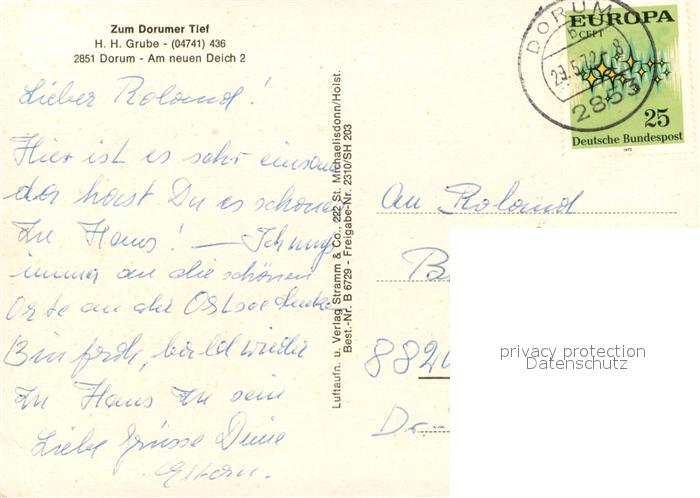 Zum Dorumer Tief
H. H. Grube - (04741) 436
2851 Dorum - Am neuen Deich 2
Lieber Roland!
Hier ist es sehr einsam
da hast Du es schöner
zu Haus! — Ich muß
immer an die schönen
Orte an der Ostsee denken
Bin froh, bald wieder
zu Haus zu sein
Liebe Grüsse Deine
Eltern.
Luftaufn. u. Verlag Stramm & Co., 222 St. Michaelisdonn/Holst.
Best.-Nr. B 6729 - Freigabe-Nr. 2310/SH 203
DORUM
b
29.5.72-8
2853
EUROPA
CEPT
25
Deutsche Bundespost
1972
An Roland
B
882
Dr.-
privacy protection
Datenschutz